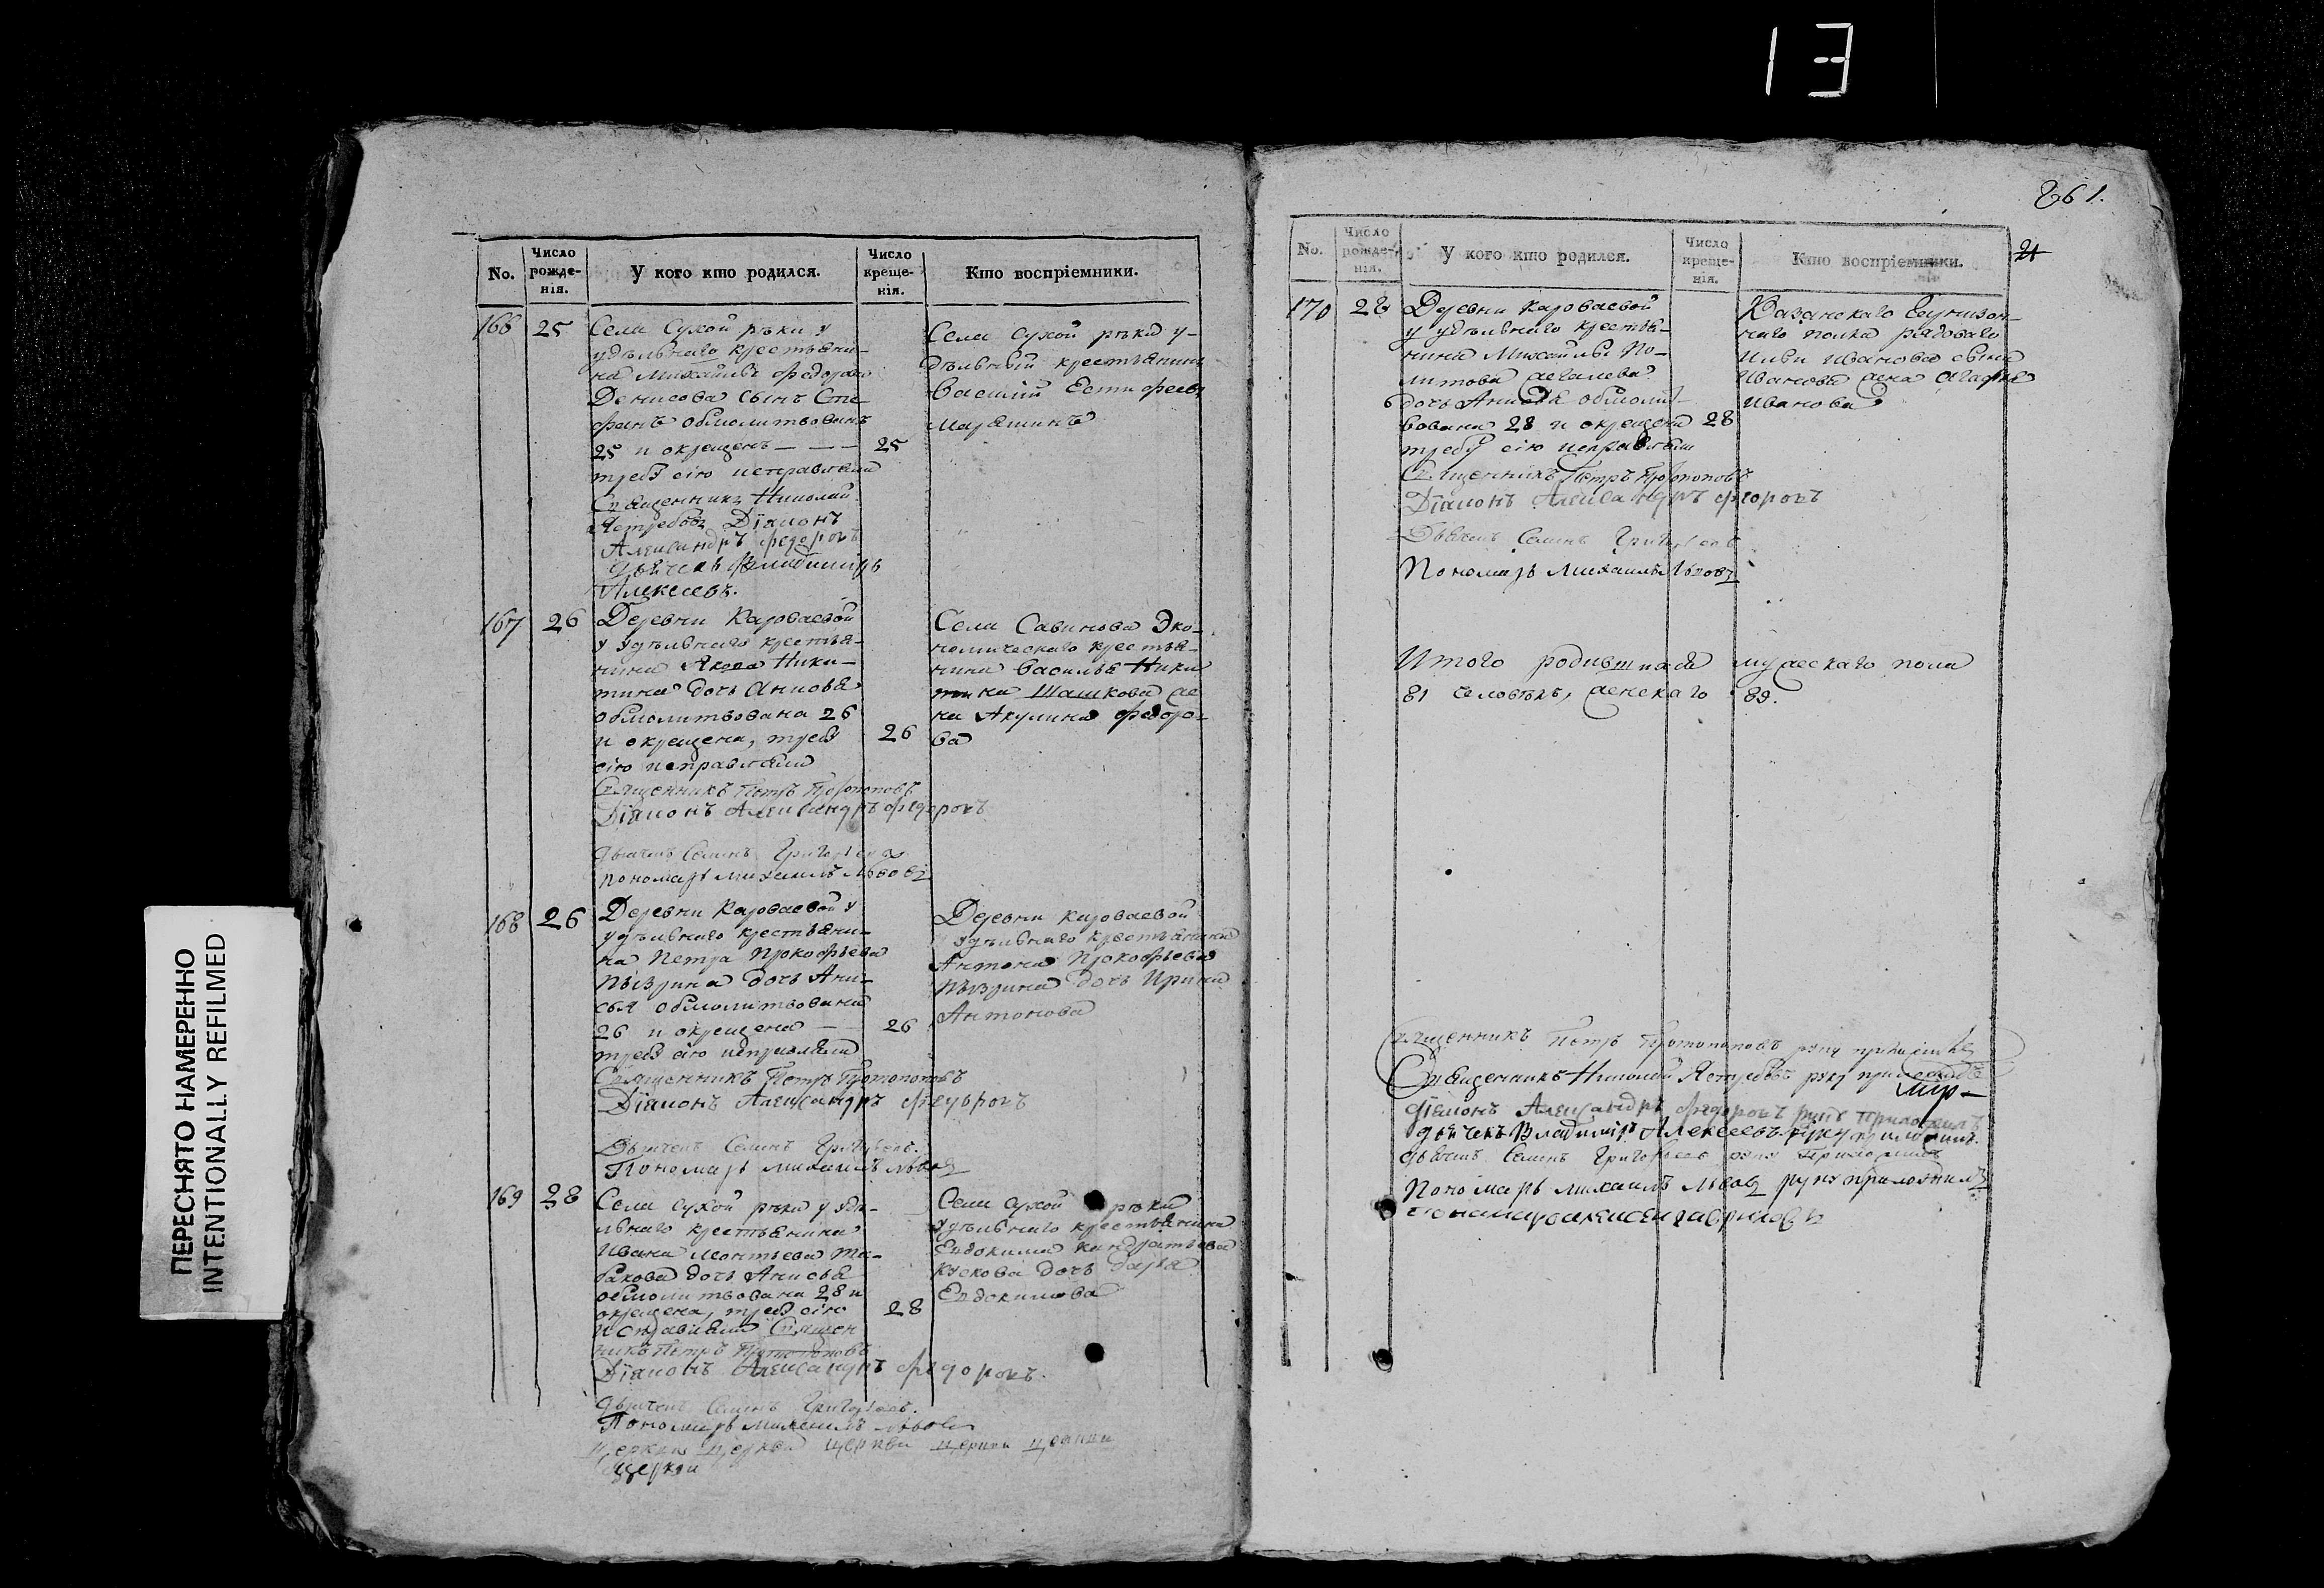 13
ПЕРЕСНЯТО НАМЕРЕННО
INTENTIONALLY REFILMED
No.
Число рожде-нія.
У кого кто родился.
Число креще-нія.
Кто воспріемники.
166 25
Села Сухой рѣки у
удѣльнаго крестьяни-
на Михайлы Федорова
Денисова сынъ Сте-
фанъ обмолитвованъ
25 и окрещенъ — — — 25
требу сію исправляли
Священникъ Николай
Ястребовъ Діаконъ
Александръ Федоровъ
дьячекъ Владимиръ
Алексеевъ.
Села Сухой рѣки у-
дѣльный крестьянинъ
Василій Естифеевъ
167 26
Деревни Караваевой
у удѣльнаго крестья-
нина Якова Ники-
тина дочь Анисья
обмолитвована 26
и окрещена, требу 26
сію исправляли
Священникъ Петръ Протопоповъ
Діаконъ Александръ Федоровъ
дьячекъ Семенъ Григорьевъ
пономарь Михаилъ Львовъ
Села Савинова Эко-
номическаго крестья-
нина Василья Ники
тина Шашкова же
на Акулина Федоро-
ва
168 26
Деревни Караваевой у
удѣльнаго крестьяни-
на Петра Прокофьева
Пызрина дочь Ани-
сья обмолитвована
26 и окрещена — 26
требу сію исправляли
Священникъ Петръ Протопоповъ
Діаконъ Александръ Федоровъ
Дьячекъ Семенъ Григорьевъ.
Пономарь Михаилъ Львовъ
Деревни Караваевой
удѣльнаго крестьянина
Антона Прокофьева
Пызрина дочь Ирина
Антонова
169 28
Села Сухой рѣки у удѣ-
льнаго крестьянина
Ивана Леонтьева
дочь Анисья
обмолитвована 28 и
окрещена, требу сію 28
исправляли Священ
никъ Петръ Протопоповъ
Діаконъ Александръ Федоровъ.
дьячекъ Семенъ Григорьевъ.
Пономарь Михаилъ Львовъ
церкви церкви церкви церкви церкви
церкви
Села Сухой рѣки
удѣльнаго крестьянина
Евдокима Кандратьева
Кускова дочь Дарья
Евдокимова
261.
21
No.
Число рожде-нія.
У кого кто родился.
Число креще-нія.
Кто воспріемники.
170 28
Деревни Караваевой
у удѣльнаго крестья-
нина Михайлы
дочь Анисья обмолит-
вована 28 и окрещена 28
требу сію исправляли
Священникъ Петръ Протопоповъ
Діаконъ Александръ Федоровъ
Дьячекъ Семенъ Григорьевъ
Пономарь Михаилъ Львовъ
Казанскаго Гарнизон-
наго полка рядоваго
Ильи Иванова сына
Иванова жена Агафья
Иванова
Итого родившихся мужескаго пола
81 человѣкъ, женскаго 89.
Священникъ Петръ Протопоповъ руку приложилъ
Священникъ Николай Ястребовъ руку приложилъ
діаконъ Александръ Федоровъ руку приложилъ
дьячекъ Владимиръ Алексеевъ руку приложилъ.
дьячекъ Семенъ Григорьевъ руку приложилъ
Пономарь Михаилъ Львовъ руку приложилъ
пономарь Алексей Гавриловъ